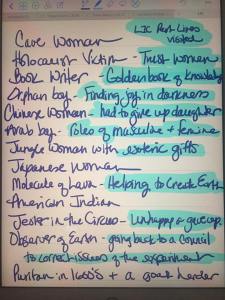 LIC Past Lives
visited
Cave Woman
Holocaust Victim - Trust Women
Book Writer - Golden book of Knowledge
Orphan boy - Finding joy in darkness
Chinese Woman - had to give up daughter
Arab boy - Roles of masculine + femine
Jungle Woman with esoteric gifts
Japanese Woman
Molecule of Lava - Helping to Create Earth
American Indian
Jester in the Circus - unhappy + gave up
Observer of Earth - going back to a Council
to correct issues of the experiment
Puritan in 1600's + a goat herder